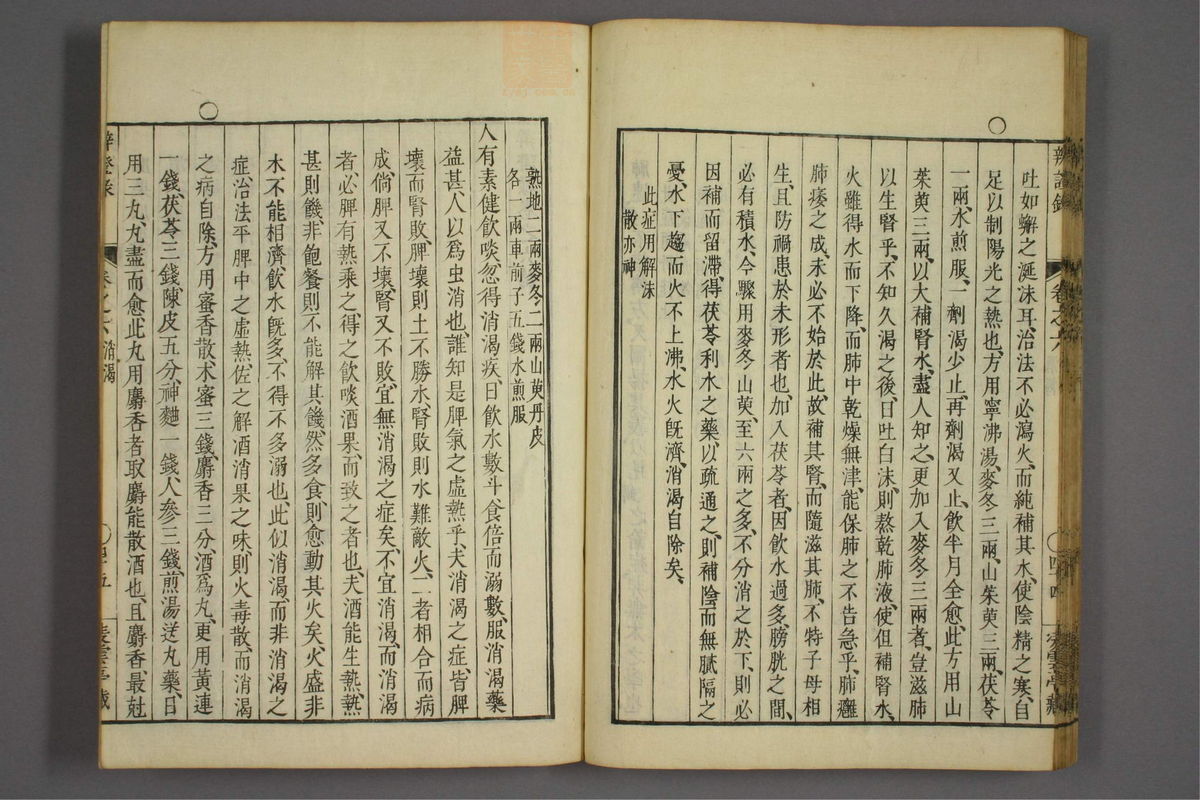 辨證錄
卷之六
四四
吐如蠏之涎沫耳、治法不必瀉火、而純補其水、使陰精之寒、自
足以制陽光之熱也、方用寧沸湯、麥冬三兩、山茱萸三兩、茯苓
一兩、水煎服、一劑渴少止、再劑渴又止、飲半月全愈、此方用山
茱萸三兩、以大補腎水、盡人知之、更加入麥冬三兩者、豈滋肺
以生腎乎、不知久渴之後、日吐白沫、則熬乾肺液、使但補腎水、
火雖得水而下降、而肺中乾燥無津、能保肺之不告急乎、肺癰
肺痿之成、未必不始於此、故補其腎、而隨滋其肺、不特子母相
生、且防禍患於未形者也、加入茯苓者、因飲水過多、膀胱之間、
必有積水、今驟用麥冬山萸、至六兩之多、不分消之於下、則必
因補而留滯、得茯苓利水之藥、以疏通之、則補陰而無膩隔之
憂、水下趨而火不上沸、水火旣濟、消渴自除矣、
此症用解沫
散亦神
熟地二兩麥冬二兩山萸丹皮
各一兩車前子五錢水煎服
人有素健飲啖、忽得消渴疾、日飲水數斗、食倍而溺數、服消渴藥
益甚、人以爲虫消也、誰知是脾氣之虛熱乎、夫消渴之症、皆脾
壞而腎敗、脾壞則土不勝水、腎敗則水難敵火、二者相合而病
成、倘脾又不壞、腎又不敗、宜無消渴之症矣、不宜消渴、而消渴
者、必脾有熱乘之、得之飲啖酒果、而致之者也、夫酒能生熱、熱
甚則饑、非飽餐則不能解其饑、然多食、則愈動其火矣、火盛非
水不能相濟、飲水旣多、不得不多溺也、此似消渴、而非消渴之
症、治法平脾中之虛熱、佐之解酒消果之味、則火毒散、而消渴
之病自除、方用蜜香散、木蜜三錢、麝香三分、酒爲丸、更用黃連
一錢、茯苓三錢、陳皮五分、神麯一錢、人參三錢、煎湯送丸藥、日
用三丸、丸盡而愈、此丸用麝香者、取麝能散酒也、且麝香、最尅
辨證錄
卷之六消渴
四五